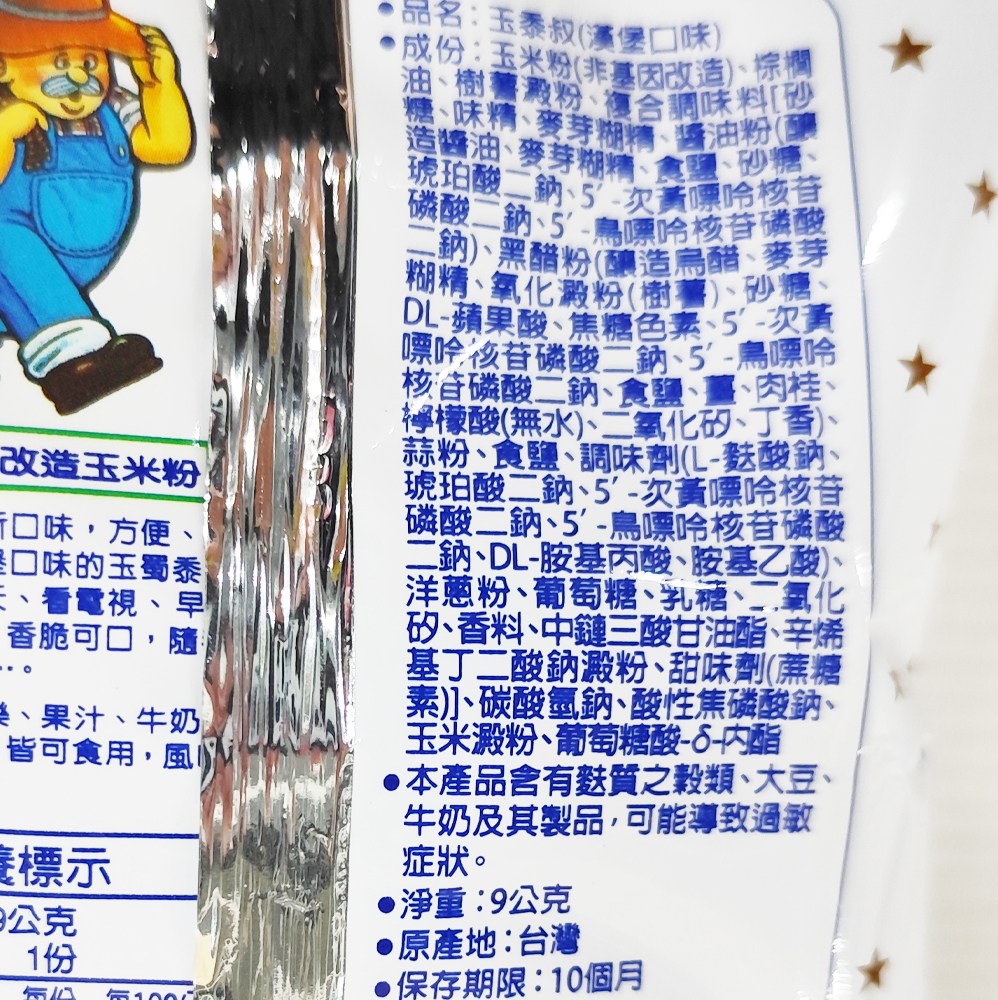 改造玉米粉
口味，方便、
口味的玉蜀黍
、看電視、早
香脆可口，隨
…。
、果汁、牛奶
皆可食用，風
養標示
9公克
1份
每份 每100公
●品名：玉黍叔(漢堡口味)
●成份：玉米粉(非基因改造)、棕櫚
油、樹薯澱粉、複合調味料[砂
糖、味精、麥芽糊精、醬油粉(釀
造醬油、麥芽糊精、食鹽、砂糖、
琥珀酸二鈉、5'-次黃嘌呤核苷
磷酸二鈉、5'-鳥嘌呤核苷磷酸
二鈉)、黑醋粉(釀造烏醋、麥芽
糊精、氧化澱粉(樹薯)、砂糖、
DL-蘋果酸、焦糖色素、5'-次黃
嘌呤核苷磷酸二鈉、5'-鳥嘌呤
核苷磷酸二鈉、食鹽、薑、肉桂、
檸檬酸(無水)、二氧化矽、丁香)、
蒜粉、食鹽、調味劑(L-麩酸鈉、
琥珀酸二鈉、5'-次黃嘌呤核苷
磷酸二鈉、5'-鳥嘌呤核苷磷酸
二鈉、DL-胺基丙酸、胺基乙酸)、
洋蔥粉、葡萄糖、乳糖、二氧化
矽、香料、中鏈三酸甘油酯、辛烯
基丁二酸鈉澱粉、甜味劑(蔗糖
素)]、碳酸氫鈉、酸性焦磷酸鈉、
玉米澱粉、葡萄糖酸-δ-內酯
●本產品含有麩質之穀類、大豆、
牛奶及其製品，可能導致過敏
症狀。
●淨重：9公克
●原產地：台灣
●保存期限：10個月